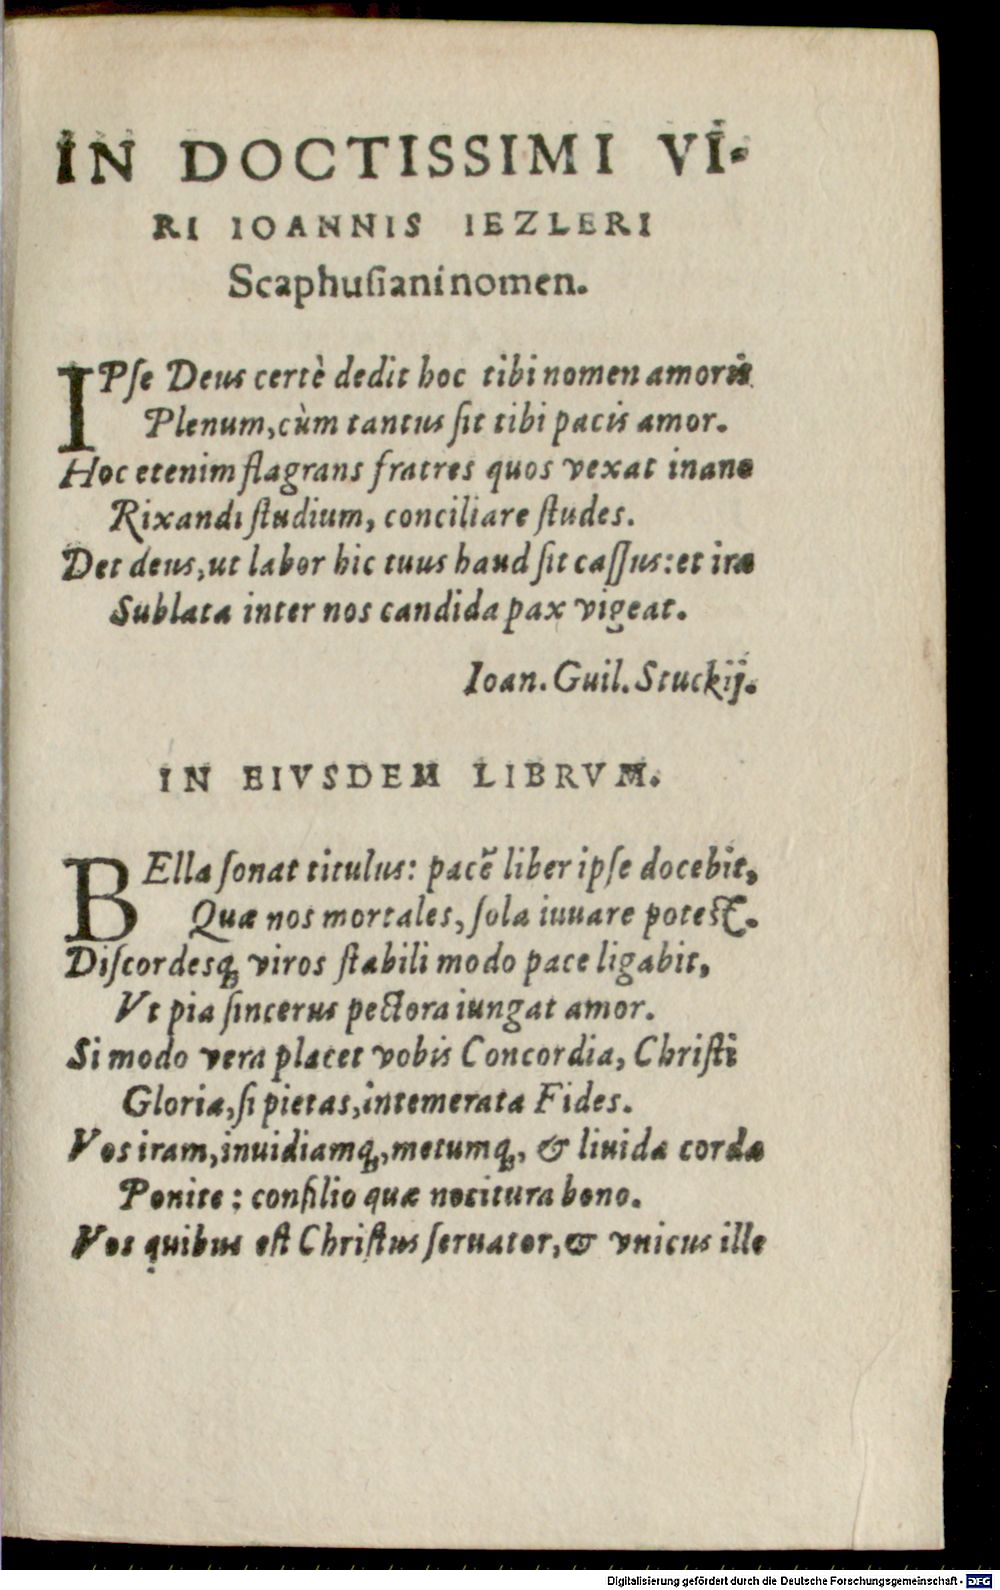 IN DOCTISSIMI VI-
RI IOANNIS IEZLERI
Scaphuſianinomen.
IPſe Deus certè dedit hoc tibi nomen amoris
Plenum, cùm tantus ſit tibi pacis amor.
Hoc etenim flagrans fratres quos vexat inane
Rixandi ſtudium, conciliare ſtudes.
Det deus, ut labor hic tuus haud ſit caſſus: et iræ
Sublata inter nos candida pax vigeat.
Ioan. Guil. Stuckij.
IN EIVSDEM LIBRVM.
BElla ſonat titulus: pacẽ liber ipſe docebit,
Quæ nos mortales, ſola iuuare poteſt.
Diſcordesq́; viros ſtabili modo pace ligabit,
Vt pia ſincerus pectora iungat amor.
Si modo vera placet vobis Concordia, Chriſti
Gloria, ſi pietas, intemerata Fides.
Vos iram, inuidiamq́;, metumq́;, & liuida corda
Ponite: conſilio quæ nocitura bono.
Vos quibus eſt Chriſtus ſeruator, & vnicus ille
Digitalisierung gefördert durch die Deutsche Forschungsgemeinschaft - DFG